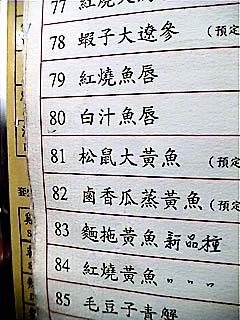 77 紅燒
78 蝦子大遼參 (預定
79 紅燒魚唇
80 白汁魚唇
81 松鼠大黃魚 (預定
82 鹵香瓜蒸黃魚 (預定
83 麵拖黃魚 新品種
84 紅燒黃魚 〃 〃 〃
85 毛豆子青蟹